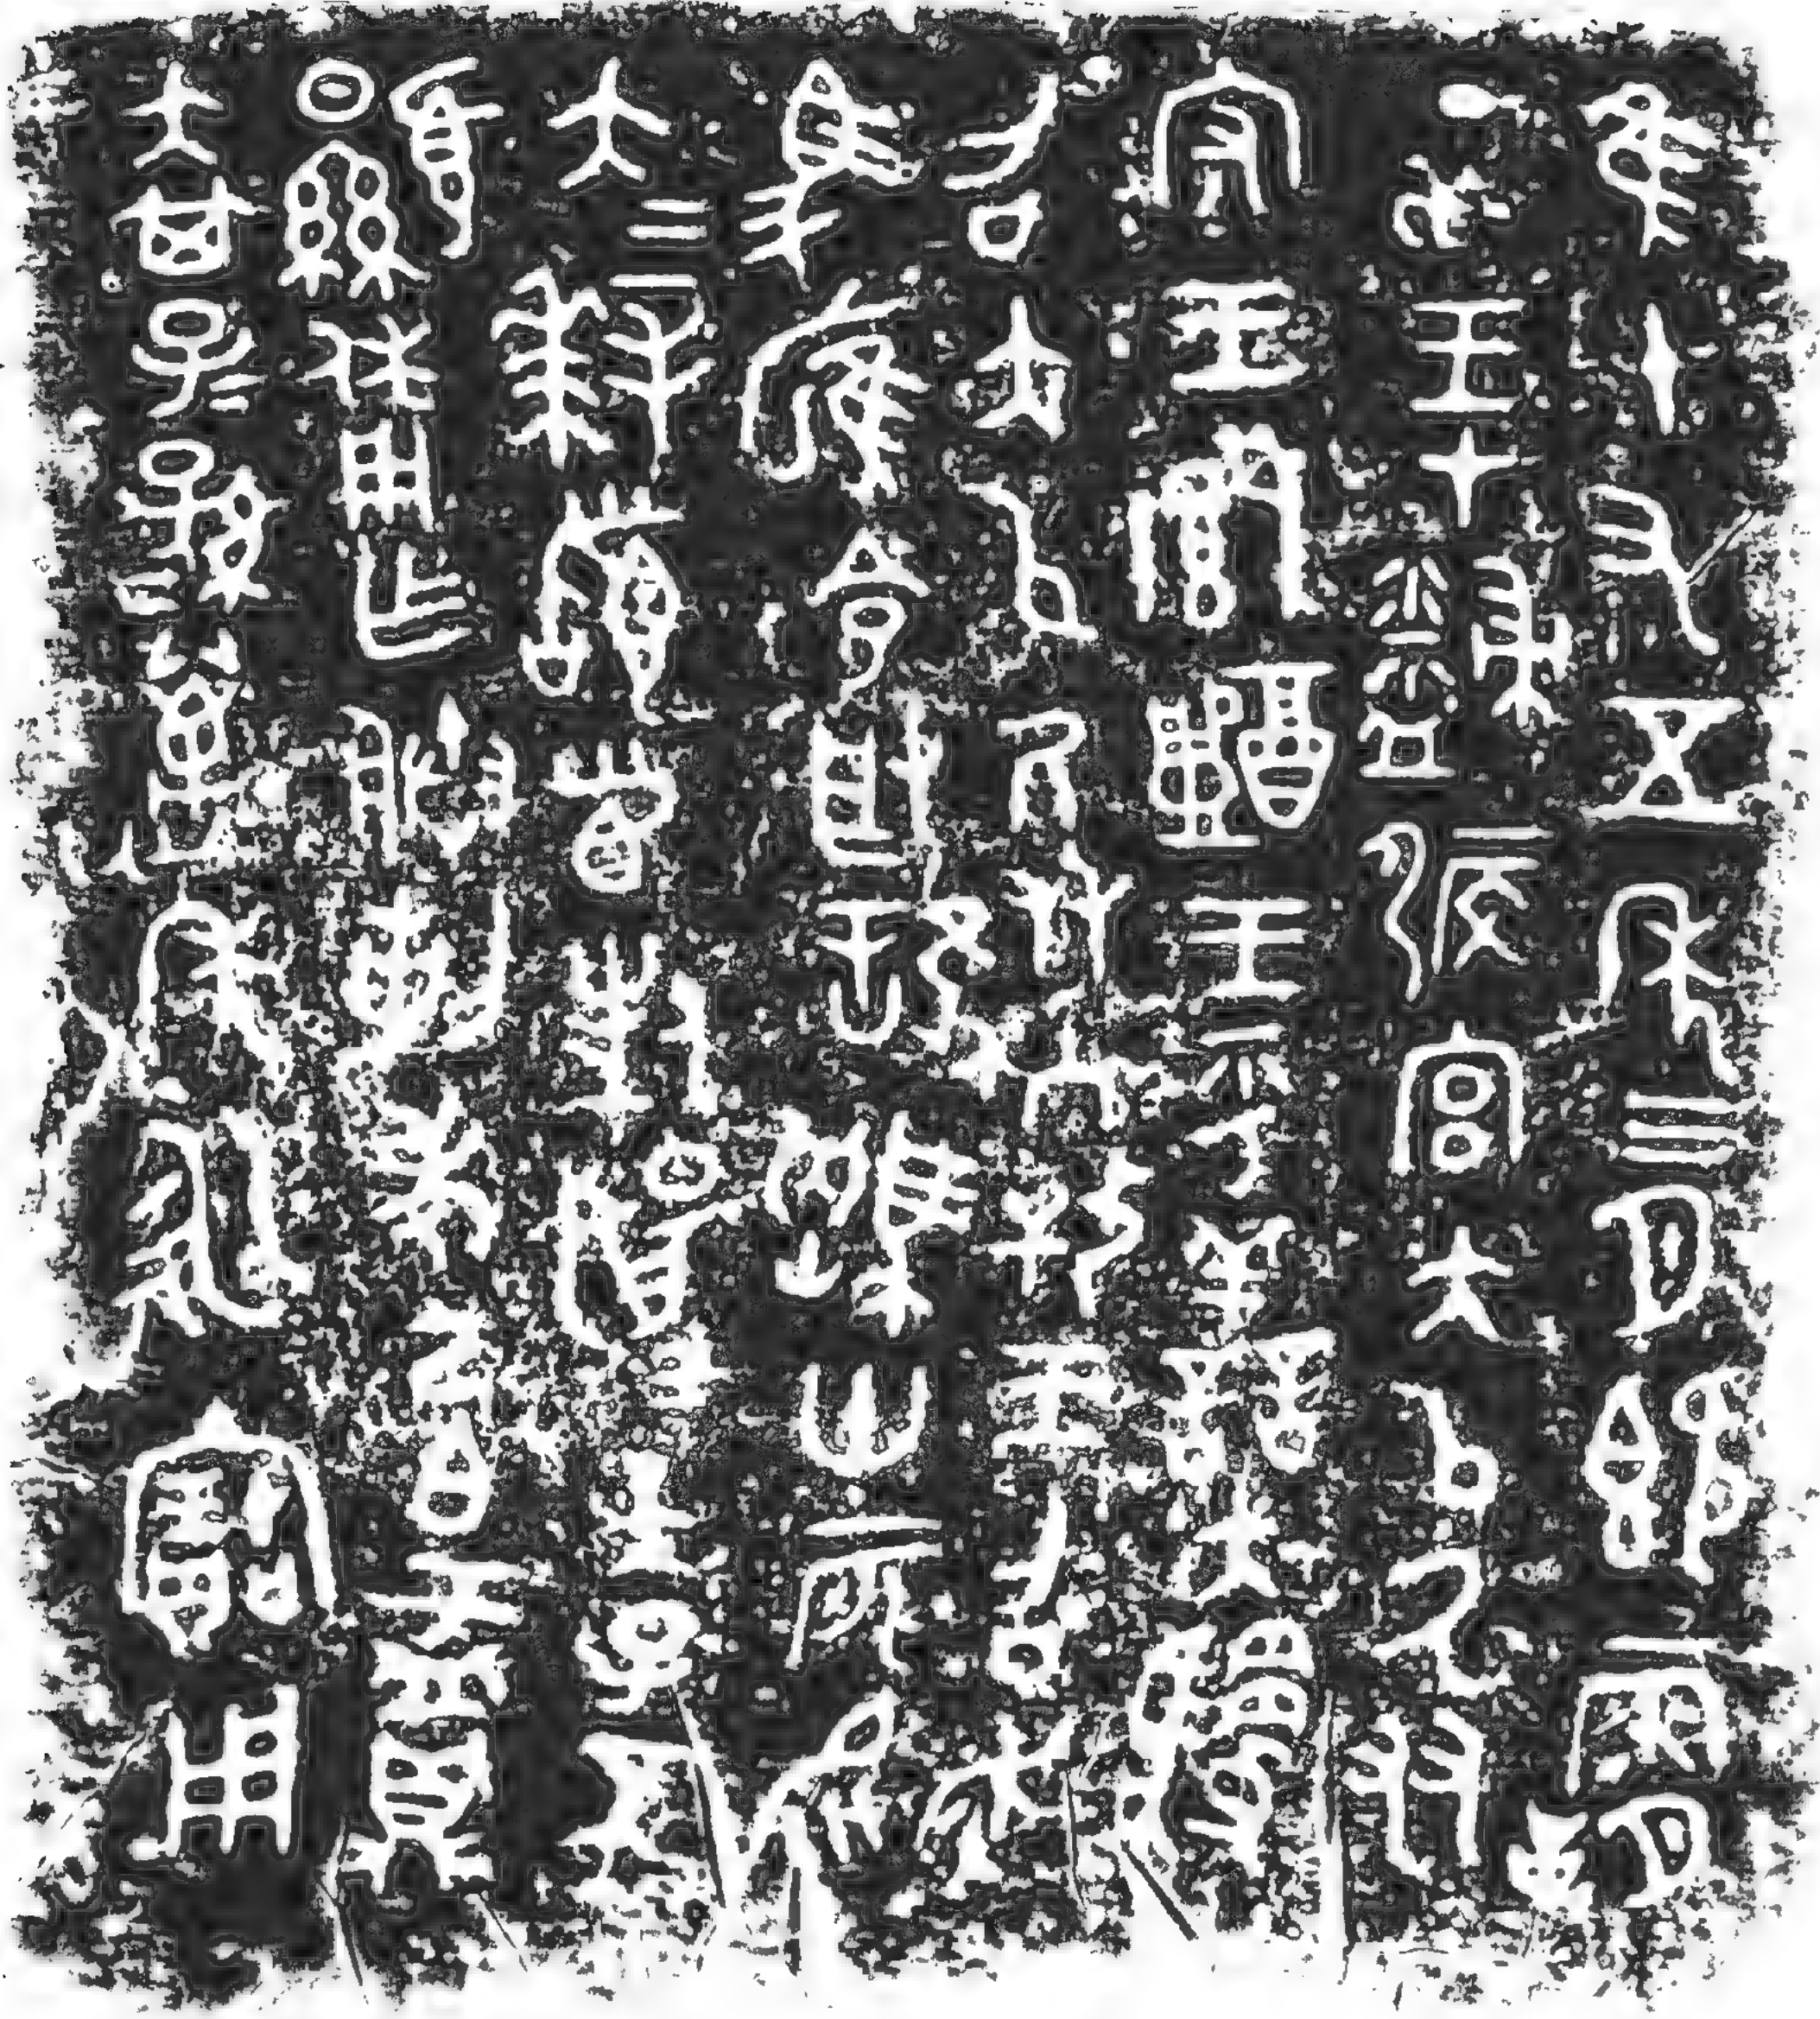 隹十又五年三月既霸
丁亥王才𩁹侲宮大以氒友
守王鄉醴王乎善大
召大以氒友入攼王召走
馬雁令取卅二匹易
大拜稽首對揚天子不
顯休用乍朕剌考己白盂鼎
大其子=孫=萬年永寶用